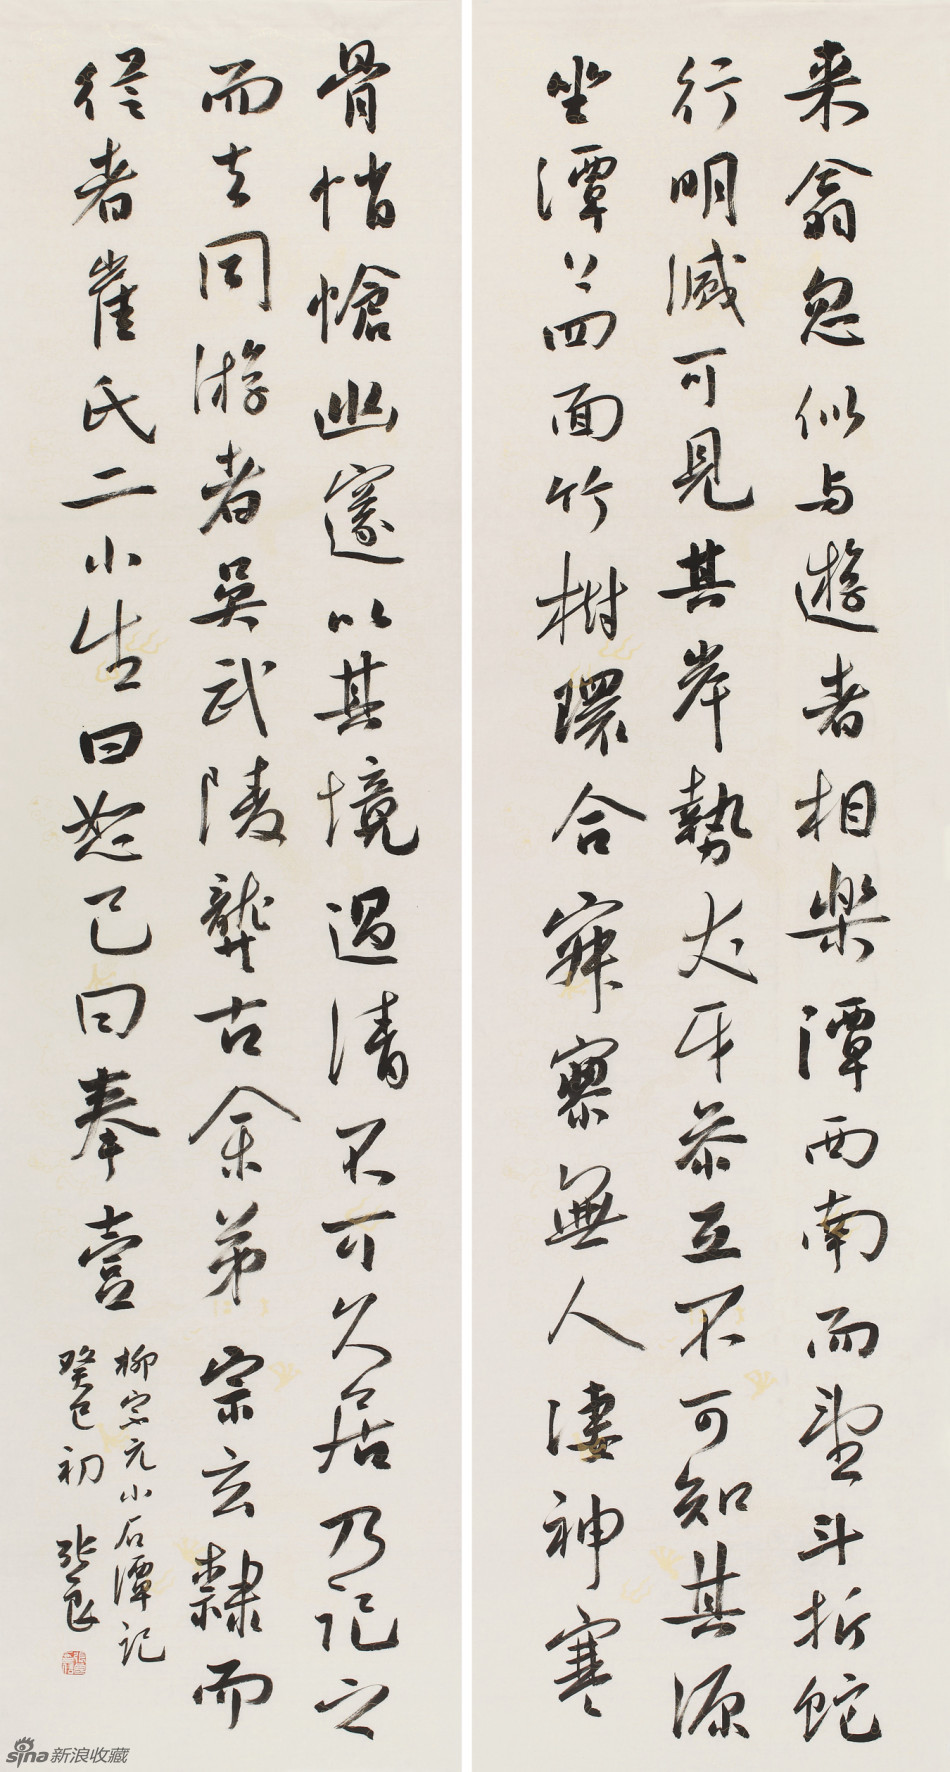 来翕忽似与遊者相樂潭西南而望斗折蛇
行明滅可見其岸勢犬牙参互不可知其源
坐潭上四面竹樹環合寂寥無人凄神寒
骨悄愴幽邃以其境過清不可久居乃记之
而去同游者吴武陵龔古余弟宗玄隸而
從者崔氏二小生曰恕己曰奉壹
柳宗元小石潭记
癸巳初 张良
sina新浪收藏